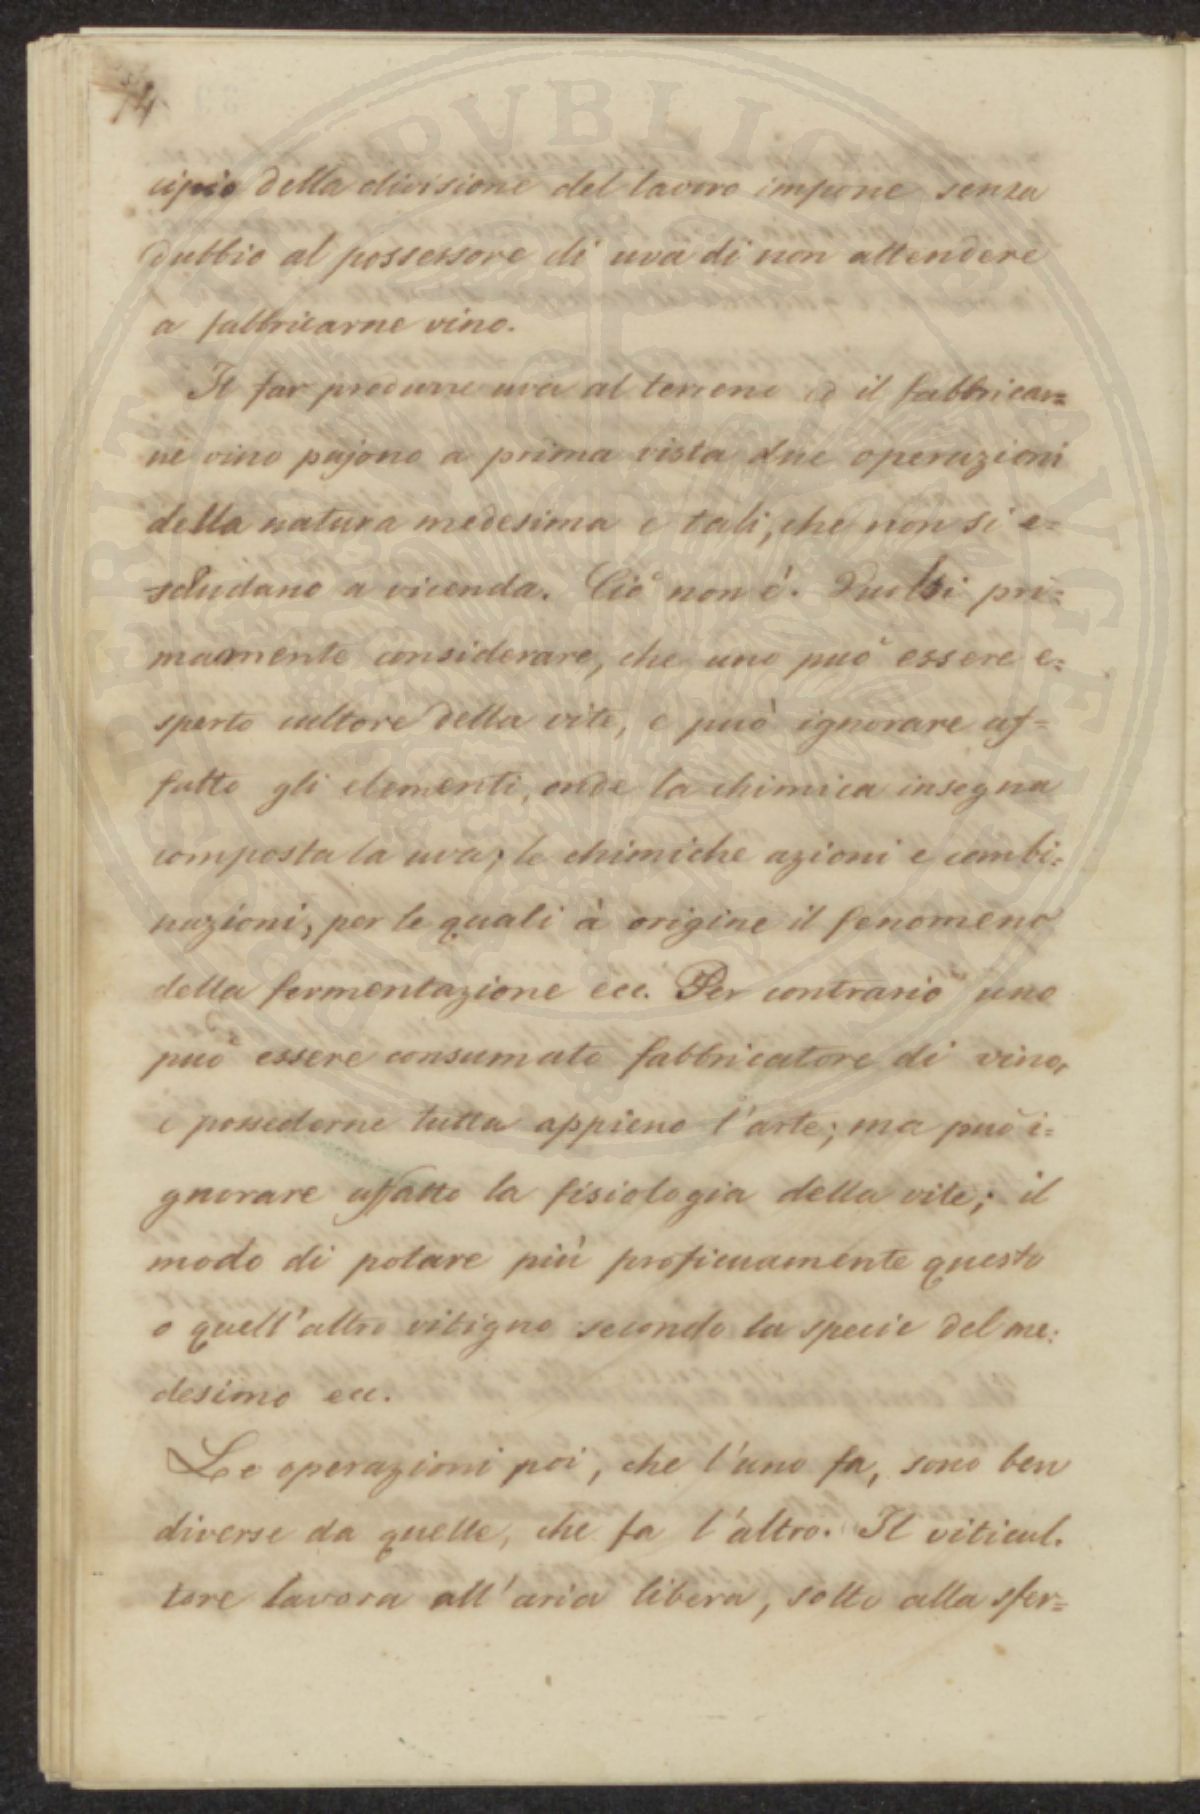 74
cipio della divisione del lavoro impone senza
dubbio al possessore di uva di non attendere
a fabbricarne vino.
Il far produrre uva al terreno e il fabbricar=
ne vino pajono a prima vista due operazioni
della natura medesima e tali, che non si e=
scludano a vicenda. Ciò non è. Vuolsi pri=
mamente considerare, che uno può essere e=
sperto cultore della vite, e può ignorare af=
fatto gli elementi, onde la chimica insegna
composta la uva; le chimiche azioni e combi=
nazioni, per le quali à origine il fenomeno
della fermentazione ecc. Per contrario uno
può essere consumato fabbricatore di vino,
e possederne tutta appieno l'arte; ma può i=
gnorare affatto la fisiologia della vite; il
modo di potare più proficuamente questo
o quell'altro vitigno secondo la specie del me=
desimo ecc.
Le operazioni poi, che l'uno fa, sono ben
diverse da quelle, che fa l'altro. Il viticul=
tore lavora all'aria libera, sotto alla sfer=